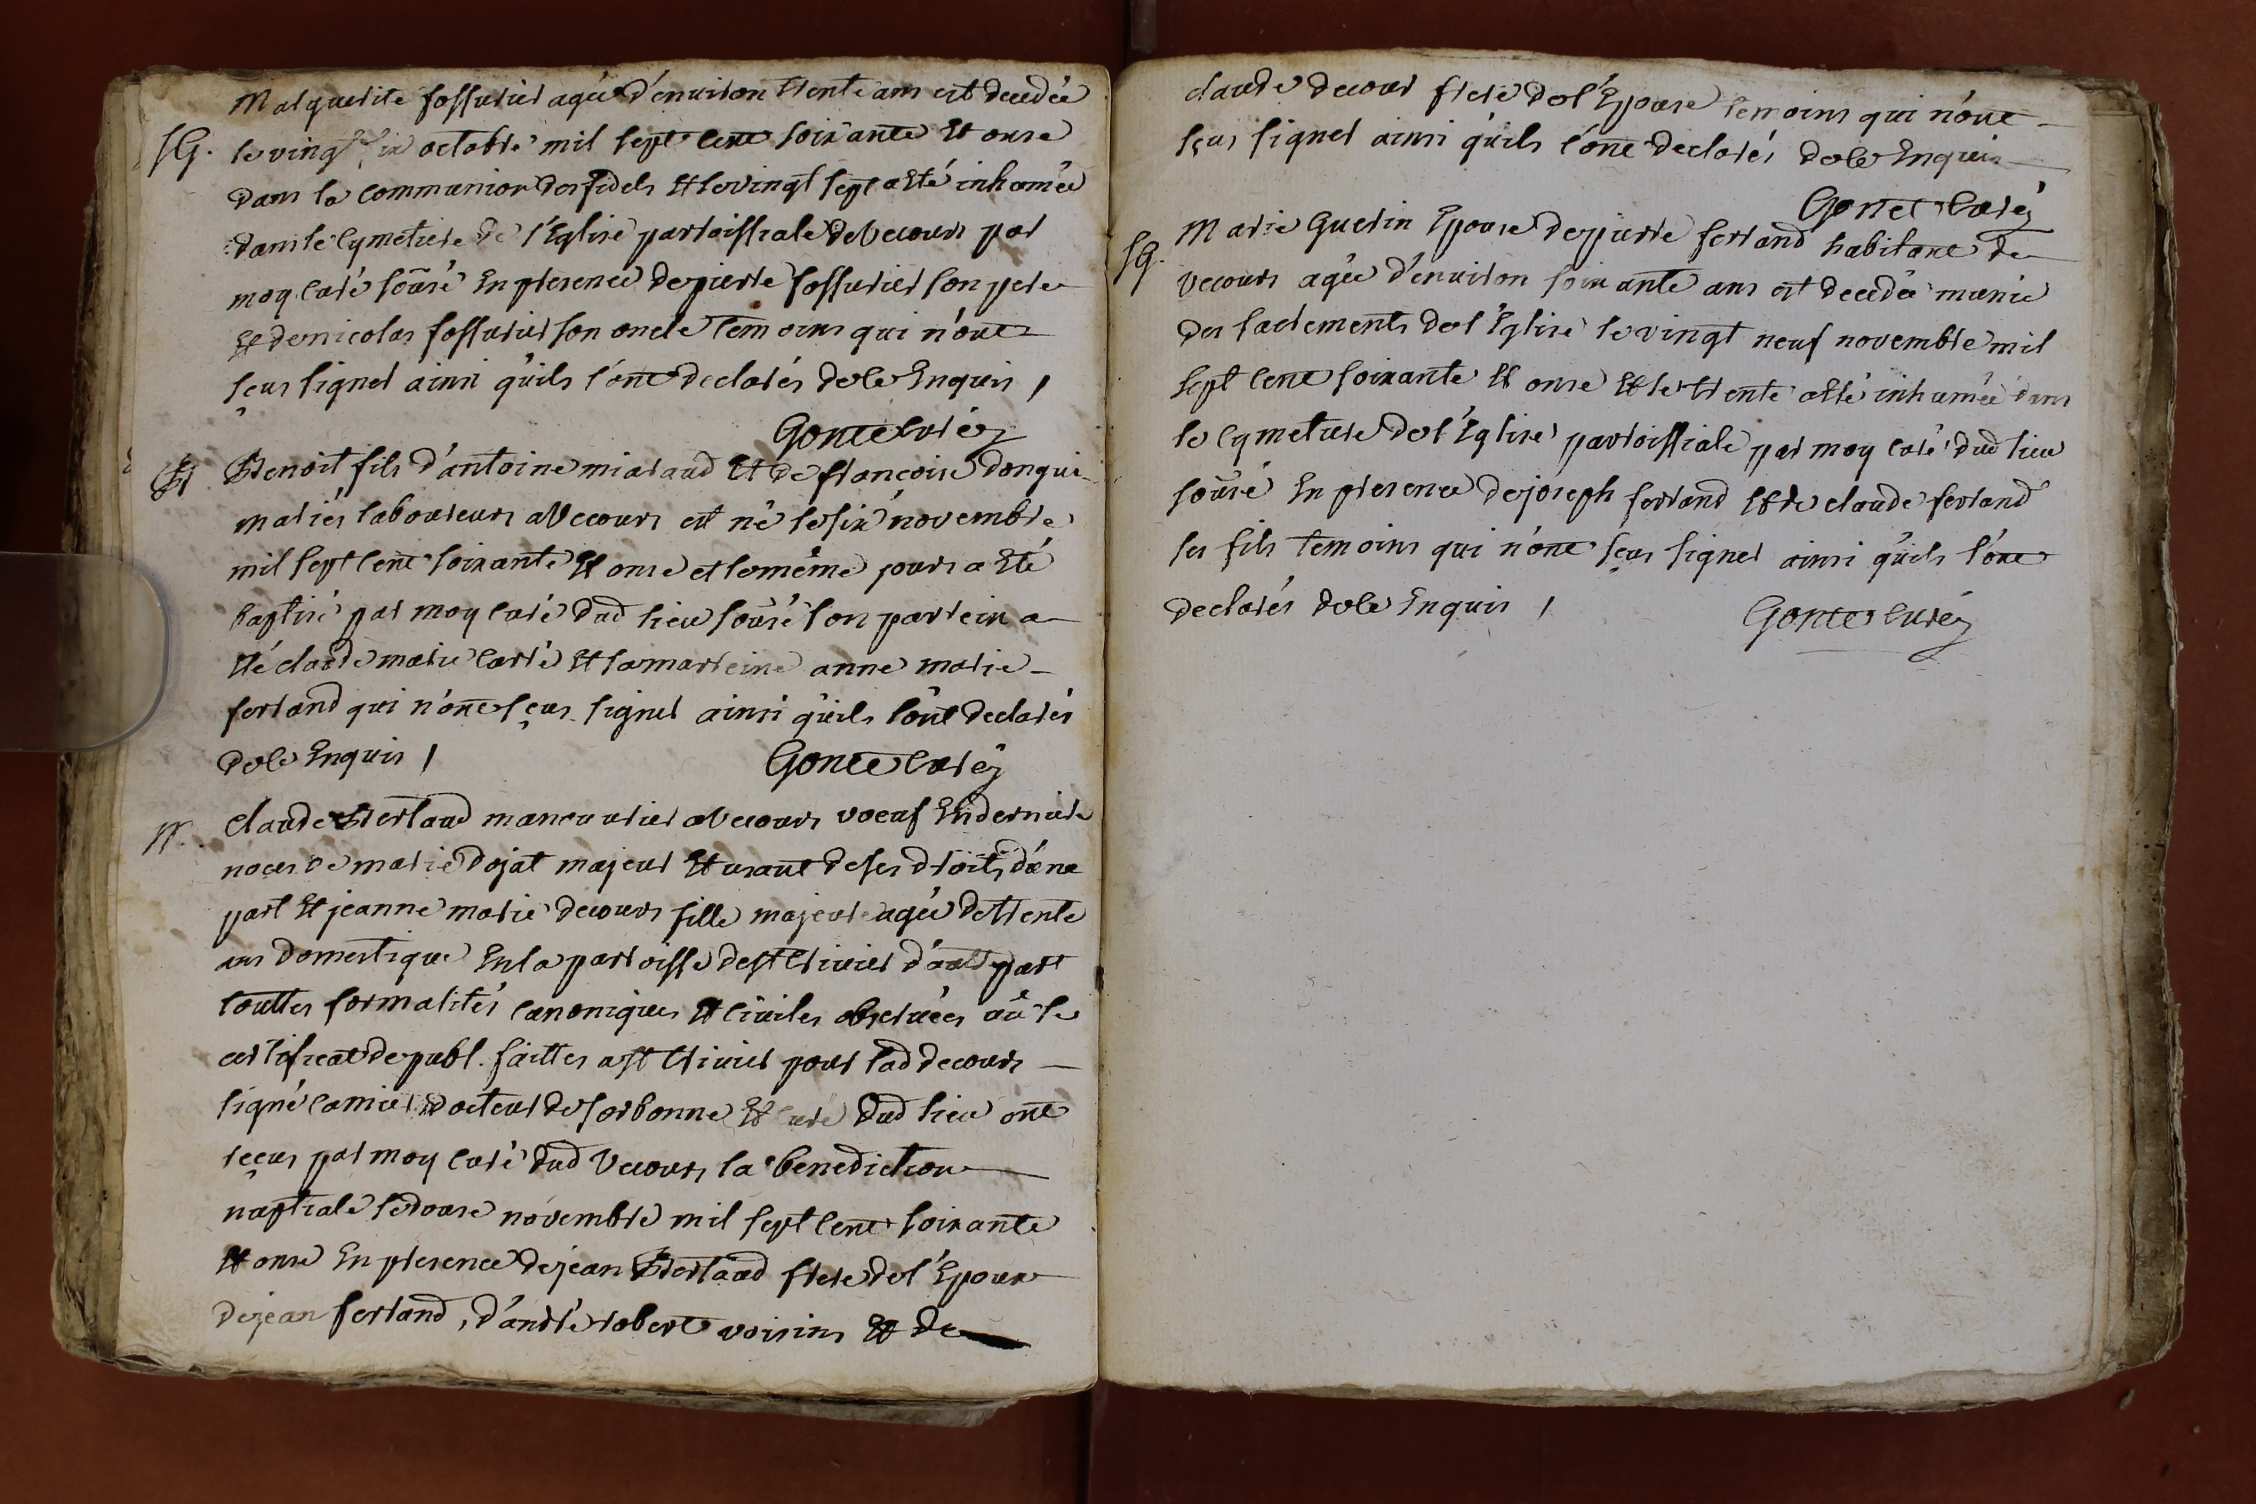 Marguerite fossurier agée d'environ trente ans est decedée
SG. le vingt six octobre mil sept cent soixante Et onse
dans la communion des fidels Et le vingt sept a Eté inhumée
dans le cymetiere de l'Eglise parroissiale de Vecours par
moy curé soûsé En presence de pierre fossurier son pere
Et de nicolas fossurier son oncle temoins qui n'ont
sçus signer ainsi qu'ils l'ont declarés de ce Enquis /
Gonet curé
Bt Benoit fils d'antoine miaraud Et de françoise donqui
mariés laboureurs a Vecours est né le six novembre
mil sept cent soixante Et onse et le même jours a Eté
baptisé par moy curé dud lieu soûsé son parrein a
Eté claude marie carré Et sa marreine anne marie
ferrand qui n'ont sçus signer ainsi qu'ils l'ont declarés
de ce Enquis /
Gonet curé
M. Claude Berlaud manouvrier a Vecours voeuf En derniere
noces de marie dojat majeur Et usant de ses droits d'une
part Et jeanne marie decours fille majeure agée de trente
ans domestique En la parroisse de st trivier d'autre part
touttes formalités canoniques Et civiles observées vû le
certificat de publ. faittes a st trivier pour lad decours
signé camier docteur de sorbonne Et curé dud lieu ont
reçus par moy curé dud Vecours la benediction
nuptiale le douse novembre mil sept cent soixante
Et onse En presence de jean Berlaud frere de l'Epoux
de jean ferrand, d'andré robert voisins Et de
claude decour frere de l'Epouse temoins qui n'ont
sçus signer ainsi qu'ils l'ont declarés de ce Enquis
Gonet curé
SG. Marie Guerin Epouse de pierre ferrand habitant de
Vecours agée d'environ soixante ans est decedée munie
des sacrements de l'Eglise le vingt neuf novembre mil
sept cent soixante Et onse Et le trente a Eté inhumée dans
le cymetiere de l'Eglise parroissiale par moy curé dud lieu
soûsé En presence de joseph ferrand Et de claude ferrand
ses fils temoins qui n'ont sçus signer ainsi qu'ils l'ont
declarés de ce Enquis /
Gonet curé